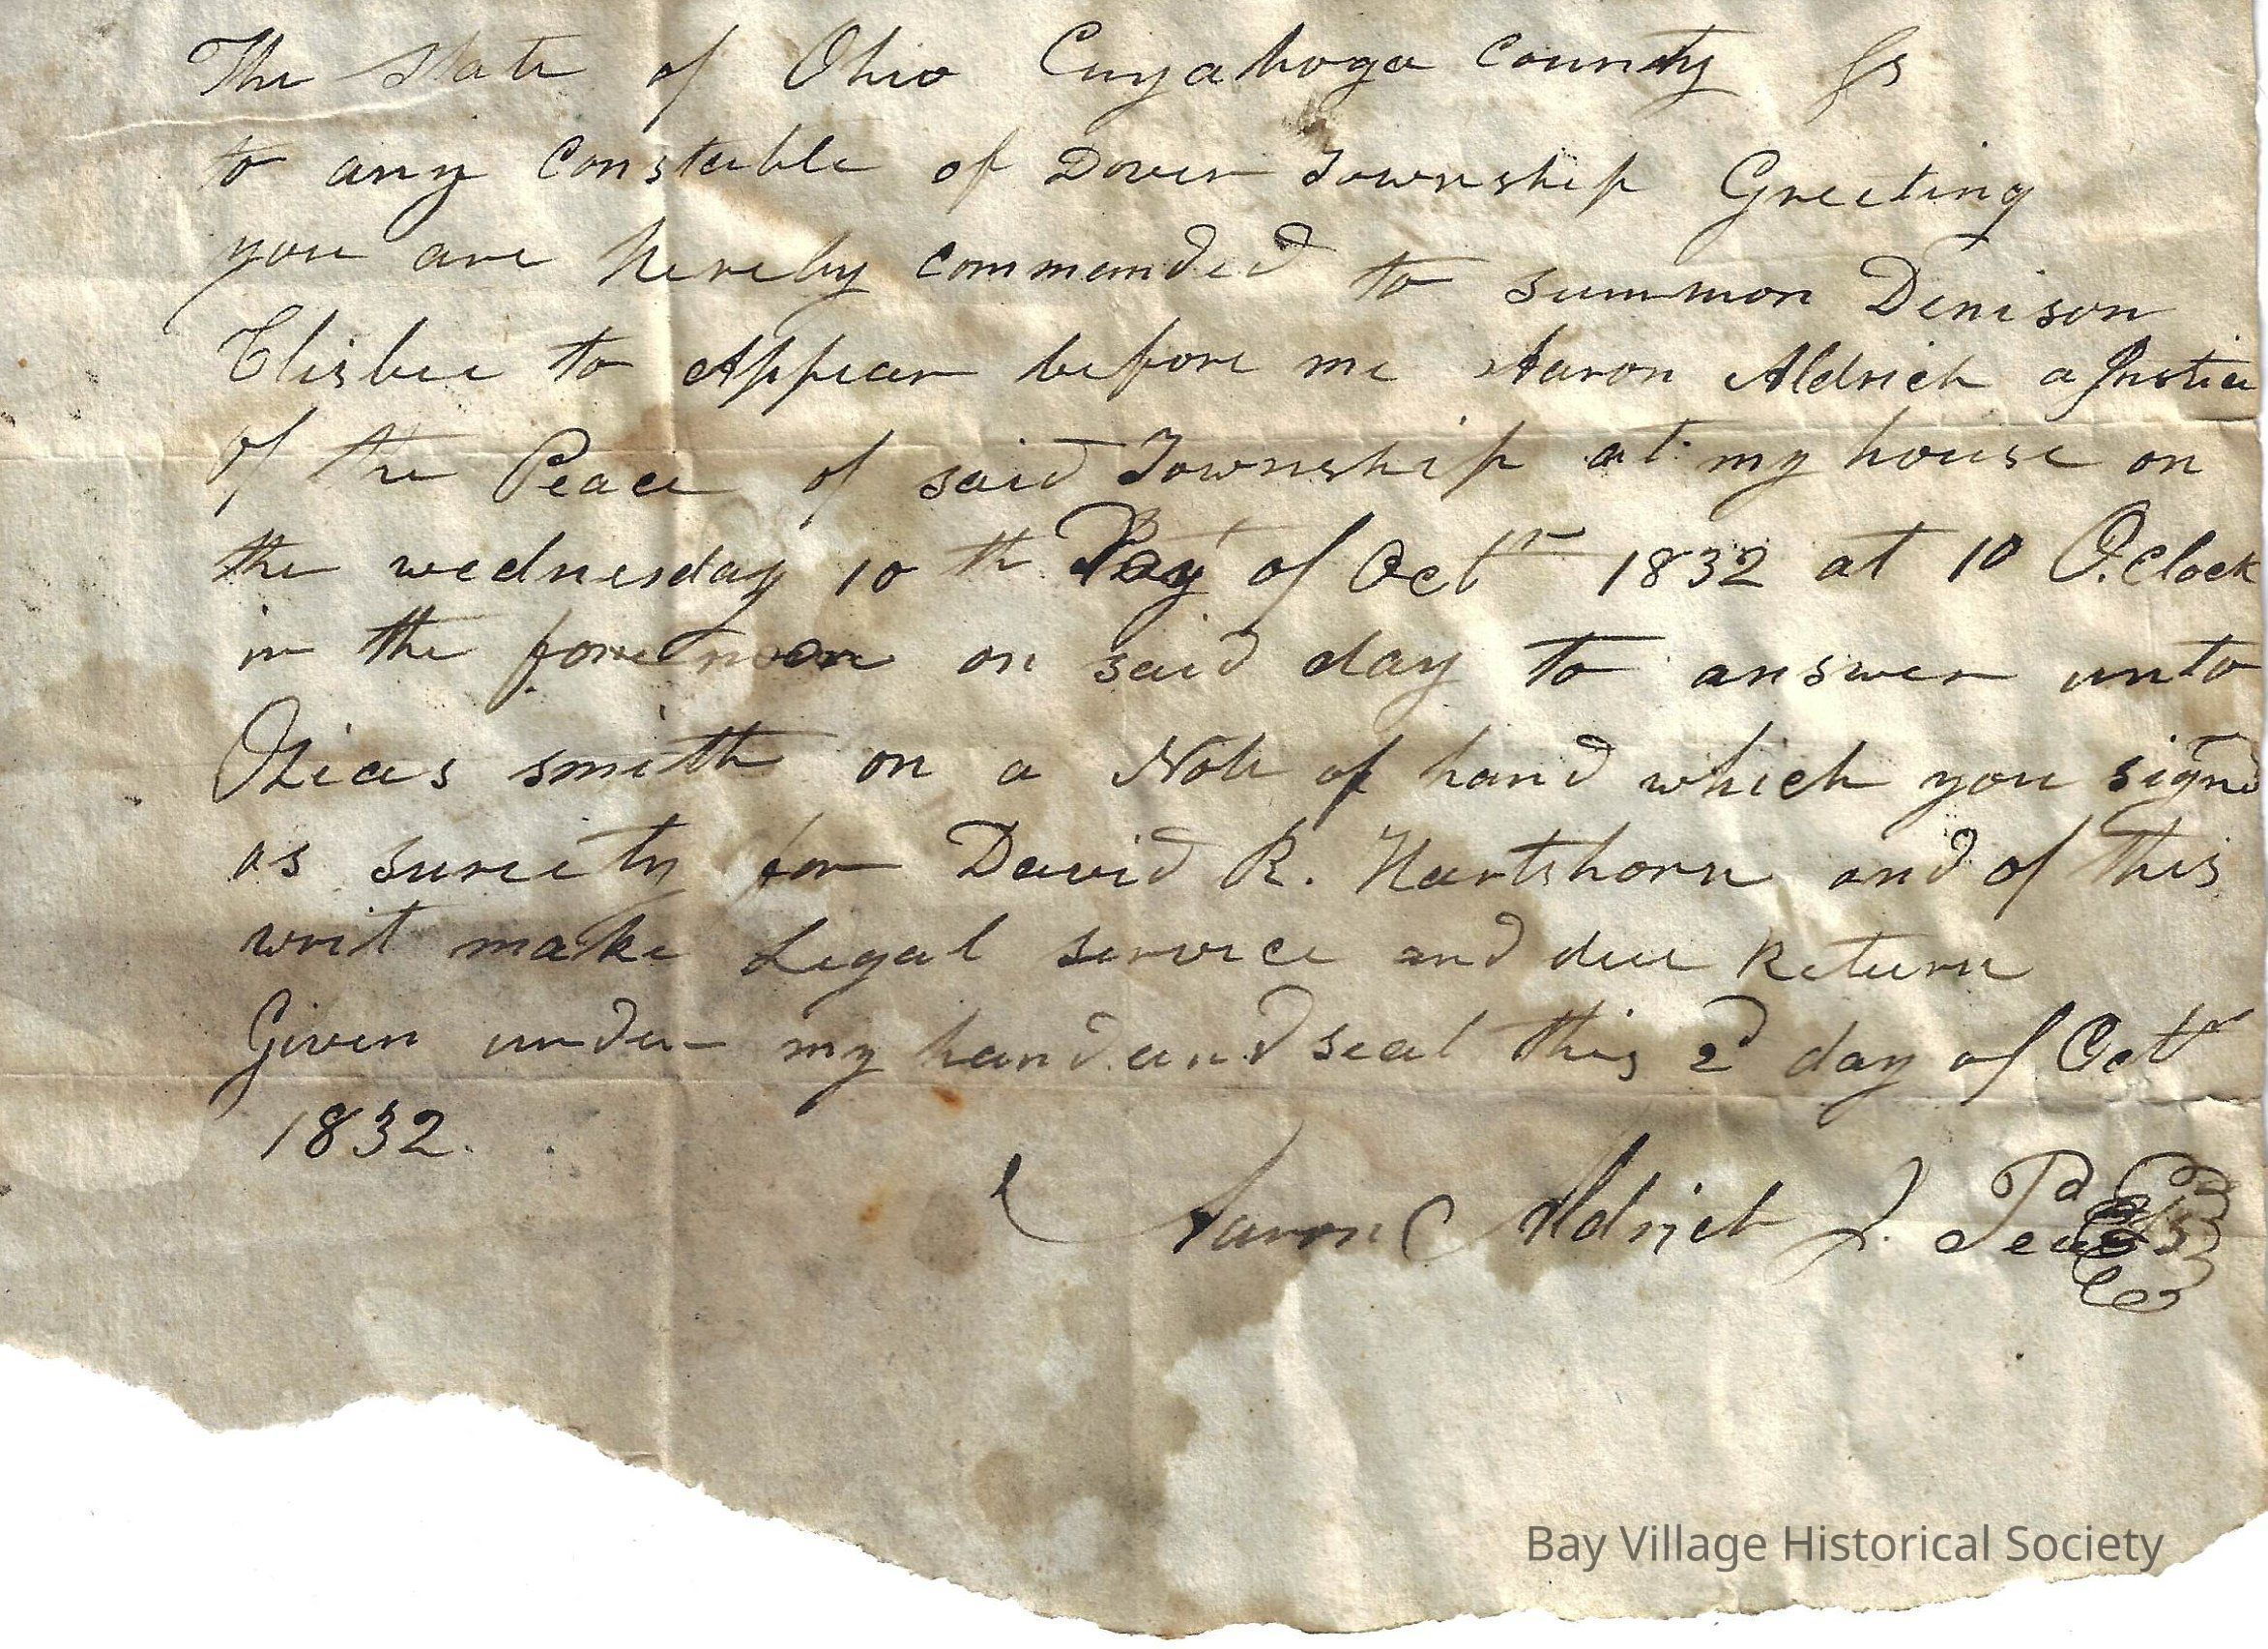 The State of Ohio Cuyahoga County ss
to any Constable of Dover Township Greeting
you are hereby commanded to summon Denison
Elisbee to Appear before me Aaron Aldrich a Justice
of the Peace of said Township at my house on
the wednesday 10 th Day of Octr 1832 at 10 O.Clock
in the forenoon on said day to answer unto
Ozias smith on a Note of hand which you signd
as sureity for David R. Hartshorn and of this
writ make Legal service and due Return
Given under my hand and seal this 2d day of Octr
1832.
Aaron Aldrich J. Peace
Bay Village Historical Society